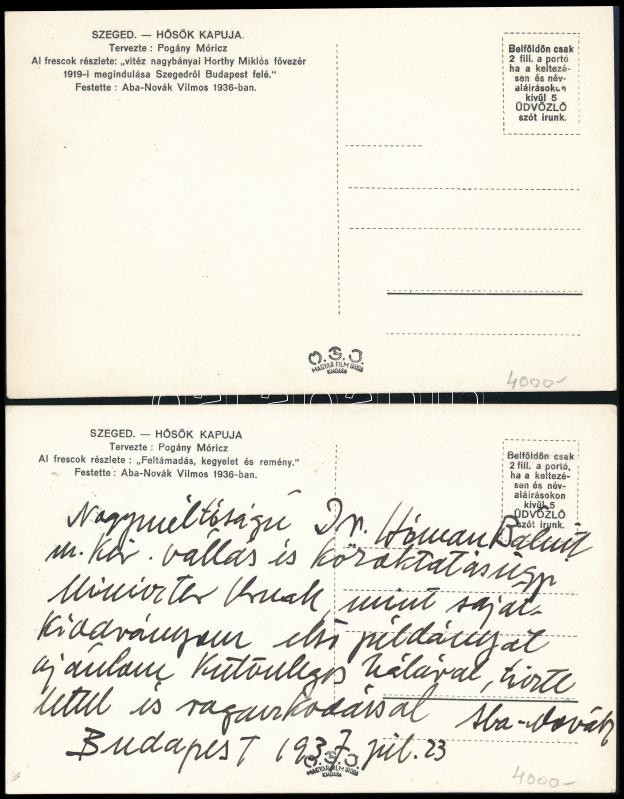 SZEGED. — HŐSÖK KAPUJA.
Tervezte : Pogány Móricz
Al frescok részlete: „vitéz nagybányai Horthy Miklós fővezér
1919-i megindulása Szegedről Budapest felé."
Festette : Aba-Novák Vilmos 1936-ban.
Belföldön csak
2 fill. a portó
ha a keltezé-
sen és név-
aláirásokon
kivül 5
ÜDVÖZLŐ
szót irunk.
MAGYAR FILM IRODA
KIADÁSA
4000-
SZEGED. — HŐSÖK KAPUJA
Tervezte : Pogány Móricz
Al frescok részlete : „Feltámadás, kegyelet és remény."
Festette : Aba-Novák Vilmos 1936-ban.
Belföldön csak
2 fill. a portó,
ha a keltezé-
sen és név-
aláirásokon
kivül 5
ÜDVÖZLŐ
szót irunk.
Nagyméltóságú Dr. Hóman Bálint
m. kir. vallás és közoktatásügyi
Miniszter Urnak, mint saját
kiadványom első példányát
ajánlom különleges hálával, tiszte
lettel és ragaszkodással Aba-Novák
Budapest 1937 júl. 23
MAGYAR FILM IRODA
KIADÁSA
4000-